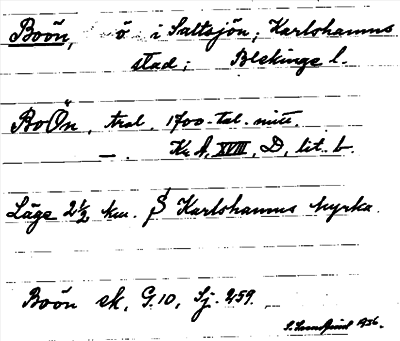 Boön, ö i Saltsjön; Karlshamns
stad; Blekinge l.
BoÖn, trol. 1700-tal. mitt.
— . Kr. A, XVIII, D, lit. b.
Läge 2½ km. S Karlshamns kyrka.
Boön sk. G.10, Sj. 259.
1936.